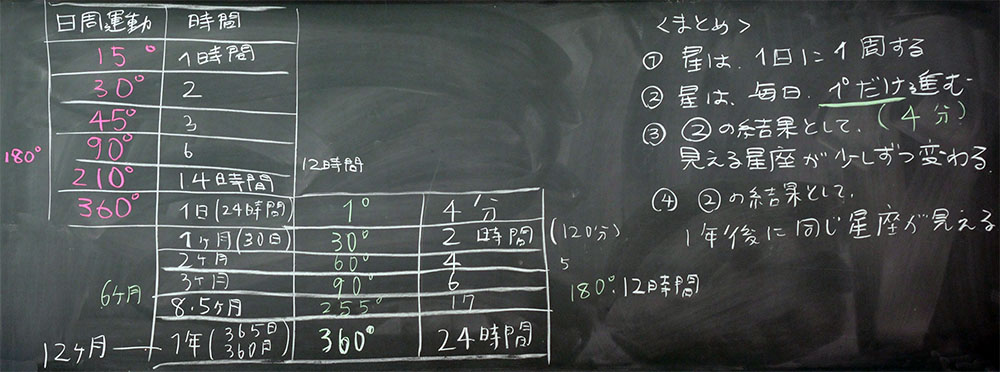 日周運動 時間
15° 1日時間
30° 2
45° 3
90° 6
180°
12時間
210° 14日時間
360° 1日(24時間) 1° 4分
1ヶ月(30日) 30° 2時間 (120分)
2ヶ月 60° 4
5
3ヶ月 90° 6
6ヶ月 180°:12時間
8.5ヶ月 255° 17
12ヶ月 1年(365日 360日) 360° 24時間
<まとめ>
① 星は、1日に1周する
② 星は、毎日、1°だけ進む
(4分)
③ ②の結果として、
見える星座が少しずつ変わる。
④ ②の結果として、
1年後に同じ星座が見える